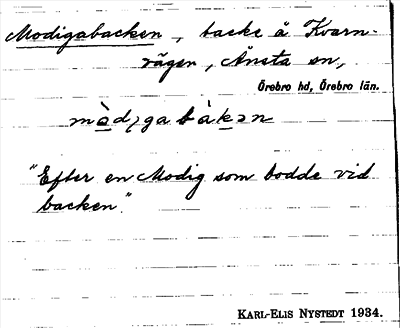 Modigabacken, backe å Kvarn-
vägen, Ånsta sn,
Örebro hd, Örebro län.
"Efter en Modig som bodde vid
backen".
KARL-ELIS NYSTEDT 1934.